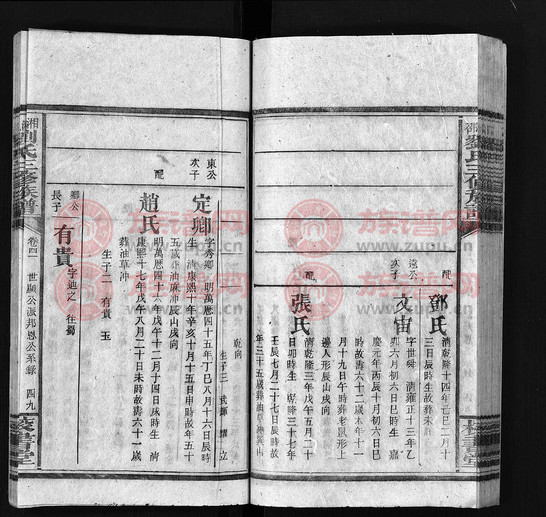 配
鄧氏
清乾隆十四年己巳二月十
三日辰時生故葬未詳
遠公
次子
文宙
字世舜 清雍正十三年乙
卯六月初六日巳時生 嘉
慶元年丙辰十月初六日巳
時故壽六十二歲本年十一
月十九日午時葬老鼠形上
邊人形辰山戌向
配
張氏
清乾隆三年戊午五月二十
日卯時生 乾隆三十七年
壬辰七月二十七日辰時故
年三十五歲葬油草沖巽山
乾向
生子三 武 輝 立
東公
次子
定卿
字秀卿 明萬曆四十五年丁巳八月十六日辰時
生 清康熙十年辛亥十月十五日申時故年五十
五歲葬油麻沖辰山戌向
配
趙氏
明萬曆四十六年戊午十二月十四日戌時生 清
康熙十七年戊午八月二十日未時故壽六十一歲
葬油草沖
生子二 有貴 玉
卿公
長子
有貴
字迪之 往蜀
劉氏三修族譜
卷四 世顯公派邦恩公系錄 四九
族譜网
www.zupu.cn